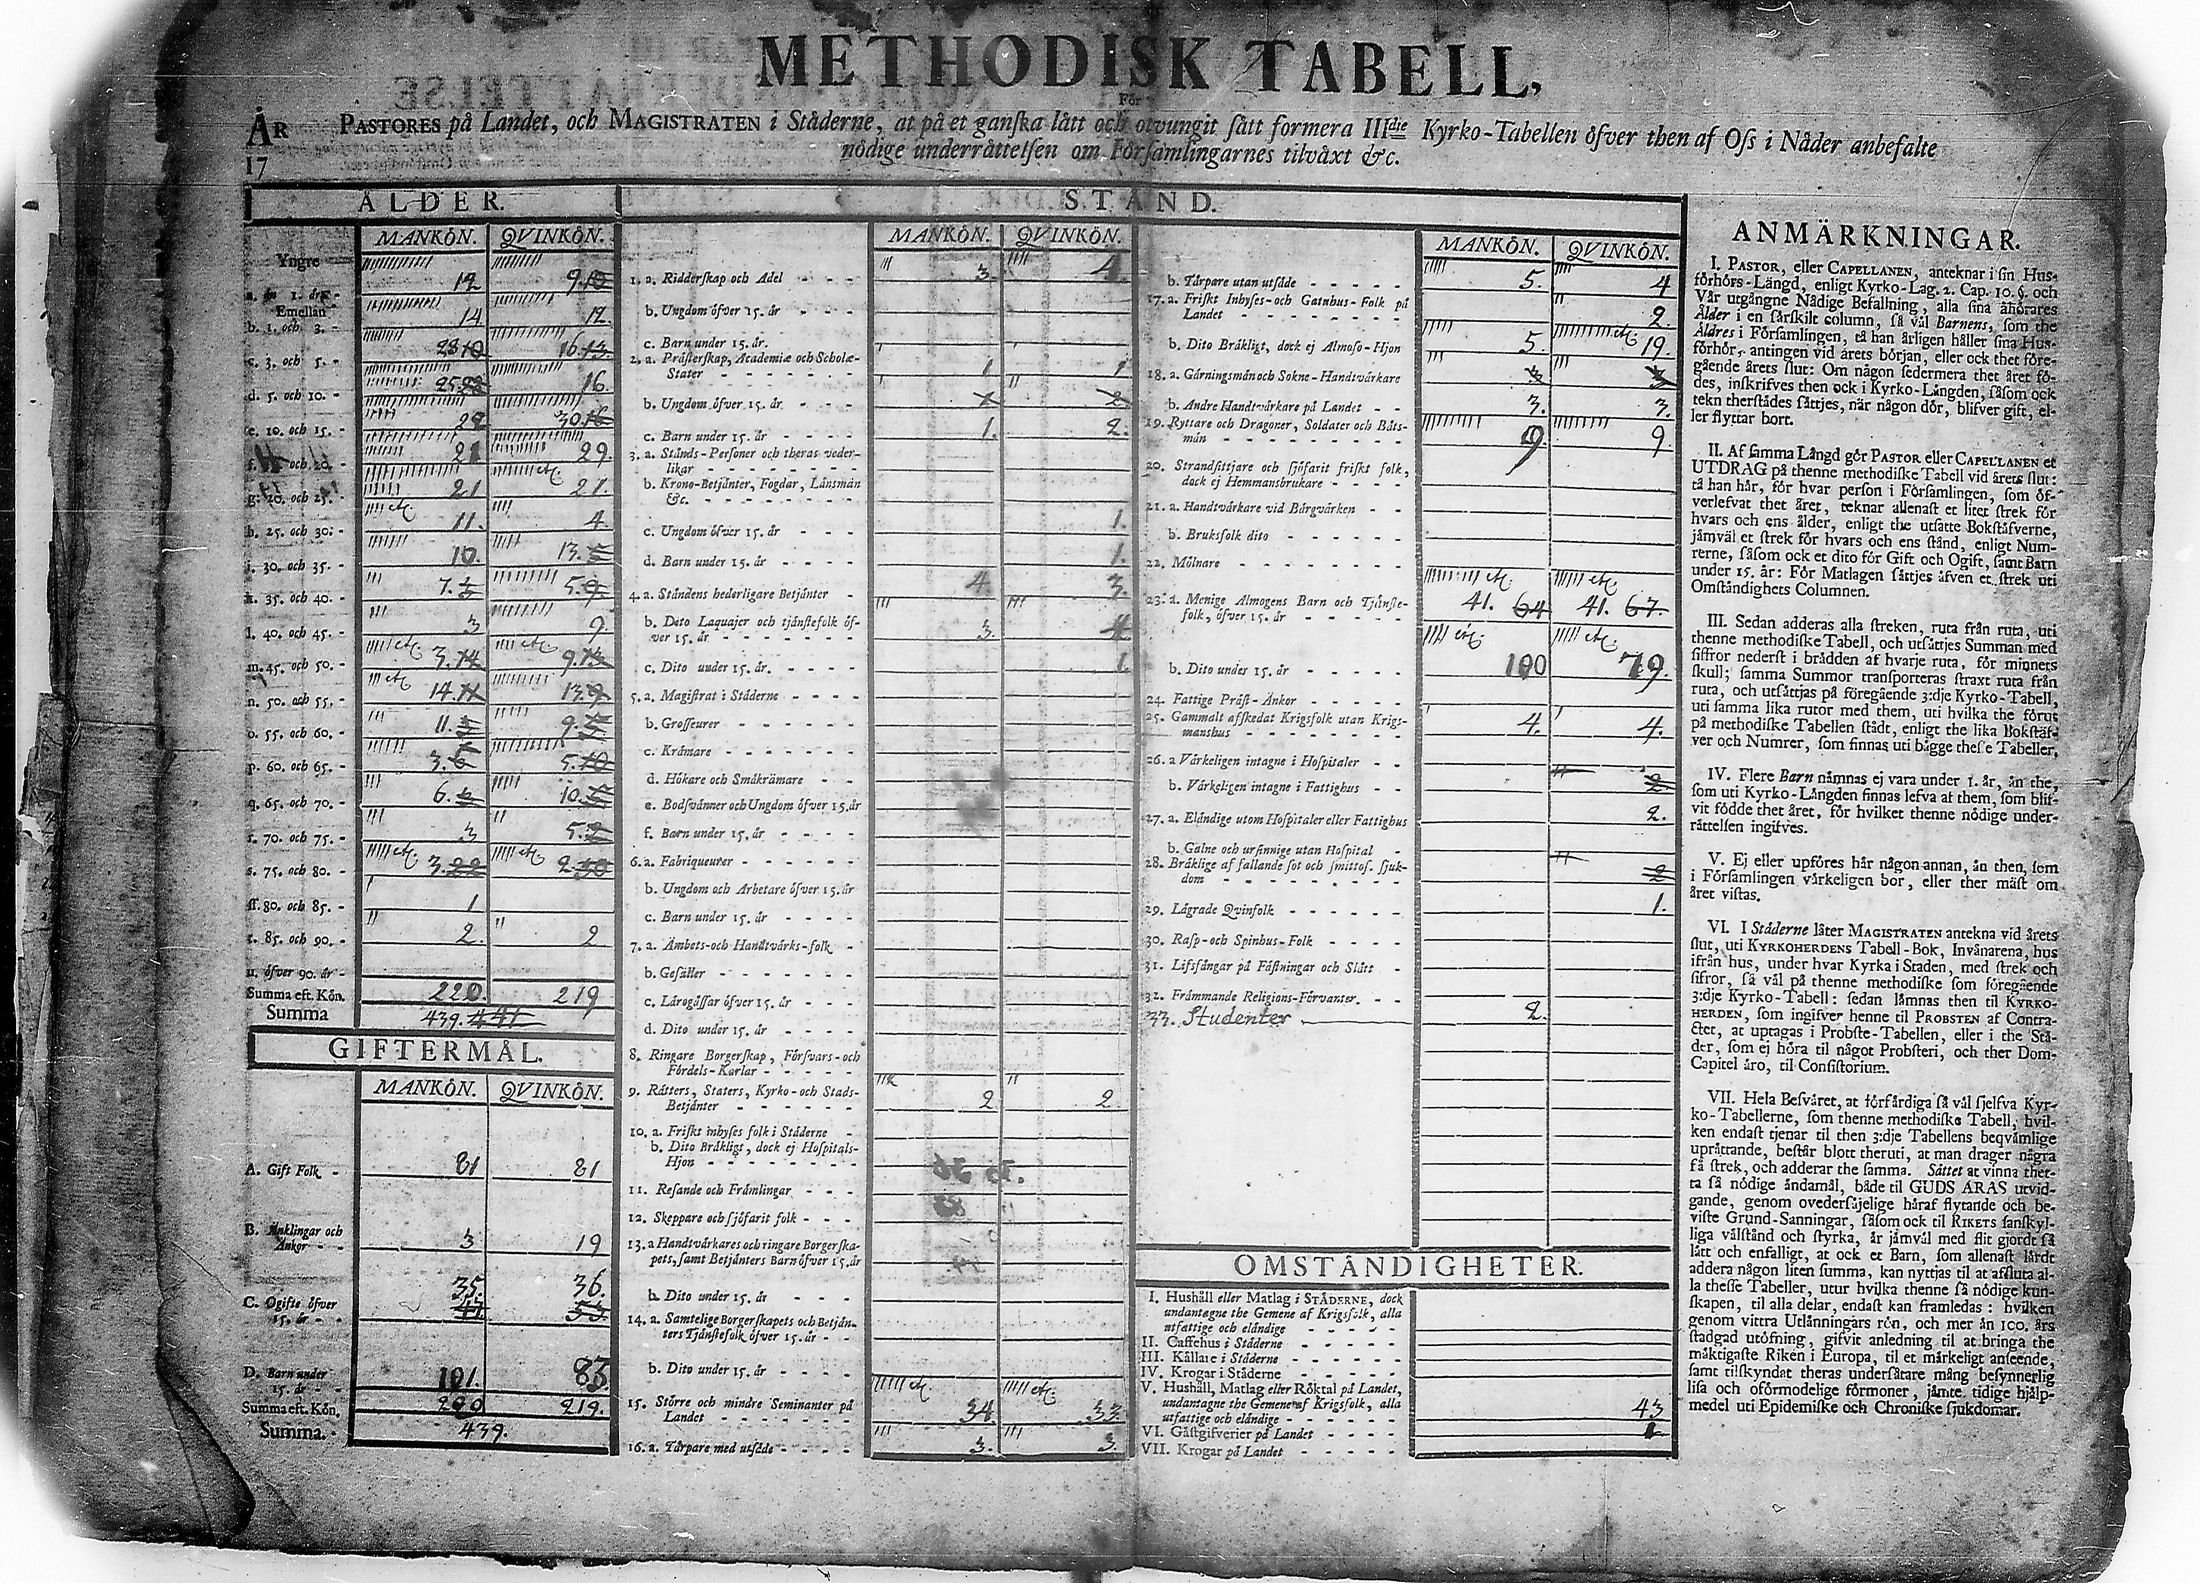 METHODISK TABELL,
För
ÅR PASTORES på Landet, och MAGISTRATEN i Ståderne, at på et ganſka lått och otvungit ſått formera IIIdie Kyrko-Tabellen öfver then af Oſs i Nåder anbefalte
17 nödige underråttelſen om Förſamlingarnes tilvåxt &c.
ÅLDER.
MANKÖN. QVINKÖN.
Yngre
a. än 1. år 12 9. 10
Emellan
b. 1. och 3. 14 12.
c. 3. och 5. 16. 13.
d. 5. och 10. 25 16.
e. 10. och 15. 30 16
f. och 20. 21 29.
g. 20. och 25. 21 21.
h. 25. och 30. 11. 4.
i. 30. och 35. 10. 13.
k. 35. och 40. 7. 5. 9.
l. 40. och 45. 3 9.
m. 45. och 50. 3. 14 9. 13
n. 50. och 55. 14. 11 13. 9
o. 55. och 60. 11. 9.
p. 60. och 65. 3. 6 5. 10
q. 65. och 70. 6. 10.
r. 70. och 75. 3 5. 2
s. 75. och 80. 3. 22 2. 30
ſſ. 80. och 85. 1
t. 85. och 90. 2. 2
u. öfver 90. år
Summa eft. Kön. 220. 219
Summa 439. 441
GIFTERMÅL.
MANKÖN. QVINKÖN.
A. Gift Folk 81 81
B. Änklingar och
Änkor 3 19
35. 36.
C. Ogifte öfver
15. år 53
D. Barn under 101. 83
15. år
Summa eft. Kön. 220 219.
Summa. 439.
STÅND.
MANKÖN. QVINKÖN.
1. a. Ridderſkap och Adel 3. 4.
b. Ungdom öfver 15. år
c. Barn under 15. år.
2. a. Pråſterſkap, Academiæ och Scholæ-
Stater 1 1
b. Ungdom öfver 15. år 1 2
c. Barn under 15. år 1. 2.
3. a. Stånds-Perſoner och theras veder-
likar
b. Krono-Betjånter, Fogdar, Lånsmån
&c.
c. Ungdom öfver 15. år 1.
d. Barn under 15. år 1.
4. a. Ståndens hederligare Betjånter 4. 3.
b. Dito Laquajer och tjånſtefolk öf-
ver 15. år 3. 4
c. Dito under 15. år. 1.
5. a. Magiſtrat i Ståderne
b. Groſſeurer
c. Kråmare
d. Hökare och Småkrämare
e. Bodſvånner och Ungdom öfver 15. år
f. Barn under 15. år
6. a. Fabriqueurer
b. Ungdom och Arbetare öfver 15. år
c. Barn under 15. år
7. a. Åmbets-och Handtvårks-folk
b. Geſäller
c. Lårogåſſar öfver 15. år
d. Dito under 15. år
8. Ringare Borgerſkap, Förſvars-och
Fördels-Karlar
9. Råtters, Staters, Kyrko-och Stads-
Betjånter 2 2.
10. a. Friſkt inhyſes folk i Ståderne
b. Dito Bråkligt, dock ej Hoſpitals-
Hjon
11. Reſande och Fråmlingar
12. Skeppare och ſjöfarit folk
13. a Handtvårkares och ringare Borgerſka-
pets, ſamt Betjånters Barn öfver 15. år
b. Dito under 15. år
14. a. Samtelige Borgerſkapets och Betjån-
ters Tjånſtefolk öfver 15. år
b. Dito under 15. år
15. Större och mindre Seminanter på
Landet 34. 33.
16. a. Tårpare med utſåde 3. 3.
MANKÖN. QVINKÖN.
b. Tårpare utan utſåde 5. 4
17. a. Friſkt Inhyſes-och Gatuhus-Folk på
Landet 2.
b. Dito Bråkligt, dock ej Almoſo-Hjon 5. 19.
18. a. Gårningsmån och Sokne-Handtvårkare 3 3
b. Andre Handtvårkare på Landet 3. 3.
19. Ryttare och Dragoner, Soldater och Båts-
mån 9. 9.
20. Strandſittjare och ſjöfarit friſkt folk,
dock ej Hemmansbrukare
21. a. Handtvårkare vid Bårgvårken
b. Bruksfolk dito
22. Mölnare
23. a. Menige Almogens Barn och Tjånſte-
folk, öfver 15. år 41. 64 41. 67.
b. Dito under 15. år 100 79.
24. Fattige Pråſt-Änkor
25. Gammalt afſkedat Krigsfolk utan Krigs-
manshus 4. 4.
26. a Vårkeligen intagne i Hoſpitaler
b. Vårkeligen intagne i Fattighus 2
27. a. Elåndige utom Hoſpitaler eller Fattighus 2.
b. Galne och urſinnige utan Hoſpital
28. Bråklige af fallande ſot och ſmittoſ. ſjuk-
dom 2
29. Lågrade Qvinfolk 1.
30. Raſp-och Spinhus-Folk
31. Lifsfångar på Fåſtningar och Slått
32. Fråmmande Religions-Förvanter.
33. Studenter 2.
OMSTÅNDIGHETER.
I. Hushåll eller Matlag i STÅDERNE, dock
undantagne the Gemene af Krigsfolk, alla
utfattige och elåndige
II. Caffehus i Ståderne
III. Kållare i Ståderne
IV. Krogar i Ståderne
V. Hushåll, Matlag eller Röktal på Landet,
undantagne the Gemene af Krigsfolk, alla
utfattige och elåndige 43
VI. Gåſtgifverier på Landet 1
VII. Krogar på Landet
ANMÄRKNINGAR.
I. PASTOR, eller CAPELLANEN, anteknar i ſin Hus-
förhörs-Långd, enligt Kyrko-Lag. 2. Cap. 10. §. och
Vår utgångne Nådige Befallning, alla ſina åhörares
Ålder i en ſårſkilt column, ſå vål Barnens, ſom the
Åldres i Förſamlingen, tå han årligen håller ſina Hus-
förhör, antingen vid årets början, eller ock thet före-
gående årets ſlut: Om någon ſedermera thet året fö-
des, inſkrifves then ock i Kyrko-Långden, ſåſom ock
tekn therſtådes ſåttjes, når någon dör, blifver gift, el-
ler flyttar bort.
II. Af ſamma Långd gör PASTOR eller CAPELLANEN et
UTDRAG på thenne methodiſke Tabell vid årets ſlut:
tå han hår, för hvar perſon i Förſamlingen, ſom öf-
verlefvat thet året, teknar allenaſt et litet ſtrek för
hvars och ens ålder, enligt the utſatte Bokſtåfverne,
jåmvål et ſtrek för hvars och ens ſtånd, enligt Num-
rerne, ſåſom ock et dito för Gift och Ogift, ſamt Barn
under 15. år: För Matlagen ſåttjes åfven et ſtrek uti
Omſtåndighets Columnen.
III. Sedan adderas alla ſtreken, ruta från ruta, uti
thenne methodiſke Tabell, och utſåttjes Summan med
ſiffror nederſt i brådden af hvarje ruta, för minnets
ſkull; ſamma Summor transporteras ſtraxt ruta från
ruta, och utſåttjas på föregående 3:dje Kyrko-Tabell,
uti ſamma lika rutor med them, uti hvilka the förus
på methodiſke Tabellen ſtådt, enligt the lika Bokſtåf-
ver och Numrer, ſom finnas uti bågge theſſe Tabeller.
IV. Flere Barn nåmnas ej vara under 1. år, ån the,
ſom uti Kyrko-Långden finnas lefva af them, ſom blif-
vit födde thet året, för hvilket thenne nödige under-
råttelſen ingifves.
V. Ej eller upföres hår någon annan, ån then, ſom
i Förſamlingen vårkeligen bor, eller ther måſt om
året viſtas.
VI. I Ståderne låter MAGISTRATEN antekna vid årets
ſlut, uti KYRKOHERDENS Tabell-Bok, Invånarena, hus
ifrån hus, under hvar Kyrka i Staden, med ſtrek och
ſifror, ſå vål på thenne methodiſke ſom föregående
3:dje Kyrko-Tabell: ſedan låmnas then til KYRKO-
HERDEN, ſom ingifver henne til PROBSTEN af Contra-
ctet, at uptagas i Probſte-Tabellen, eller i the Stå-
der, ſom ej höra til något Probſteri, och ther Dom-
Capitel åro, til Conſiſtorium.
VII. Hela Beſvåret, at förfårdiga ſå vål ſjelfva Kyr-
ko-Tabellerne, ſom thenne methodiſke Tabell, hvil-
ken endaſt tjenar til then 3:dje Tabellens beqvåmlige
upråttande, beſtår blott theruti, at man drager några
få ſtrek, och adderar the ſamma. Såttet at vinna thet-
ta ſå nödige åndamål, både til GUDS ÅRAS utvid-
gande, genom ovederſåjelige håraf flytande och be-
viſte Grund-Sanningar, ſåſom ock til RIKETS ſanſkyl-
liga vålſtånd och ſtyrka, år jåmvål med flit gjordt ſå
lått och enfalligt, at ock et Barn, ſom allenaſt lårdt
addera någon liten ſumma, kan nyttjas til at affluta al-
la theſſe Tabeller, utur hvilka thenne ſå nödige kun-
ſkapen, til alla delar, endaſt kan framledas: hvilken
genom vittra Utlånningars rön, och mer ån 100. års
ſtadgad utöfning, gifvit anledning til at bringa the
måktigaſte Riken i Europa, til et mårkeligt anſeende,
ſamt tilſkyndat theras underſåtare mång beſynnerlig
liſa och oförmodelige förmoner, jåmte tidige hjålp-
medel uti Epidemiſke och Chroniſke ſjukdomar.